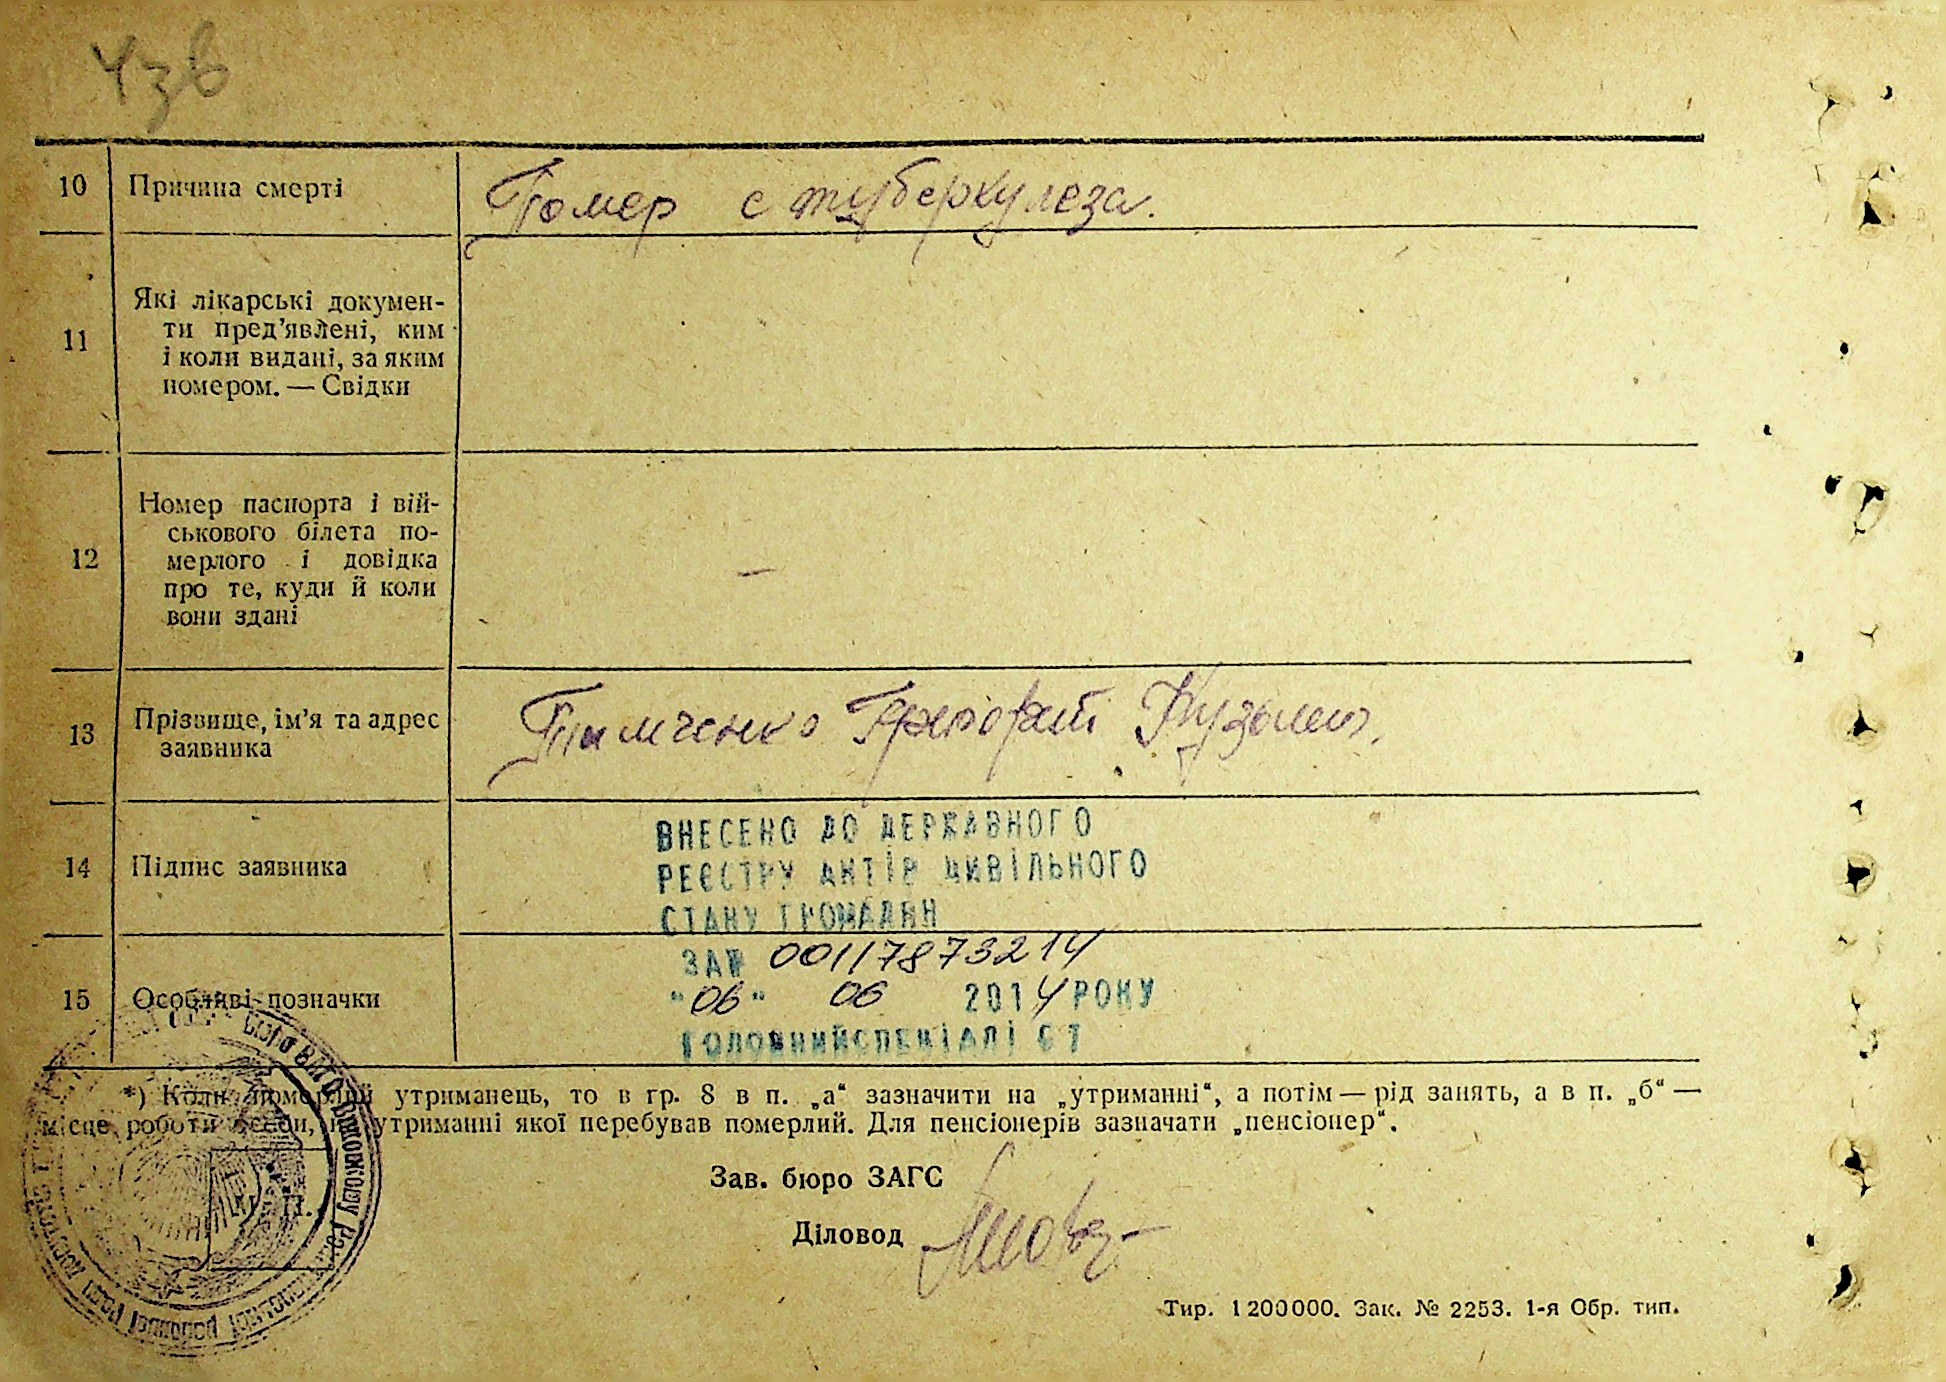 10 Причина смерті Помер с туберкулеза.
11 Які лікарські докумен-
ти пред’явлені, ким
і коли видані, за яким
номером. — Свідки
12 Номер паспорта і вій-
ськового білета по-
мерлого і довідка
про те, куди й коли
вони здані —
13 Прізвище, ім’я та адрес
заявника Тимченко
14 Підпис заявника
ВНЕСЕНО ДО ДЕРЖАВНОГО
РЕЄСТРУ АКТІВ ЦИВІЛЬНОГО
СТАНУ ГРОМАДЯН
ЗА№ 00117873214
15 Особливі позначки
"06" 06 2014 РОКУ
ГОЛОВНИЙ СПЕЦІАЛІСТ
*) Коли померлий утриманець, то в гр. 8 в п. „а“ зазначити на „утриманні“, а потім — рід занять, а в п. „б“ —
місце роботи особи, на утриманні якої перебував померлий. Для пенсіонерів зазначати „пенсіонер“.
Зав. бюро ЗАГС
Діловод
Тир. 1200000. Зак. № 2253. 1-я Обр. тип.